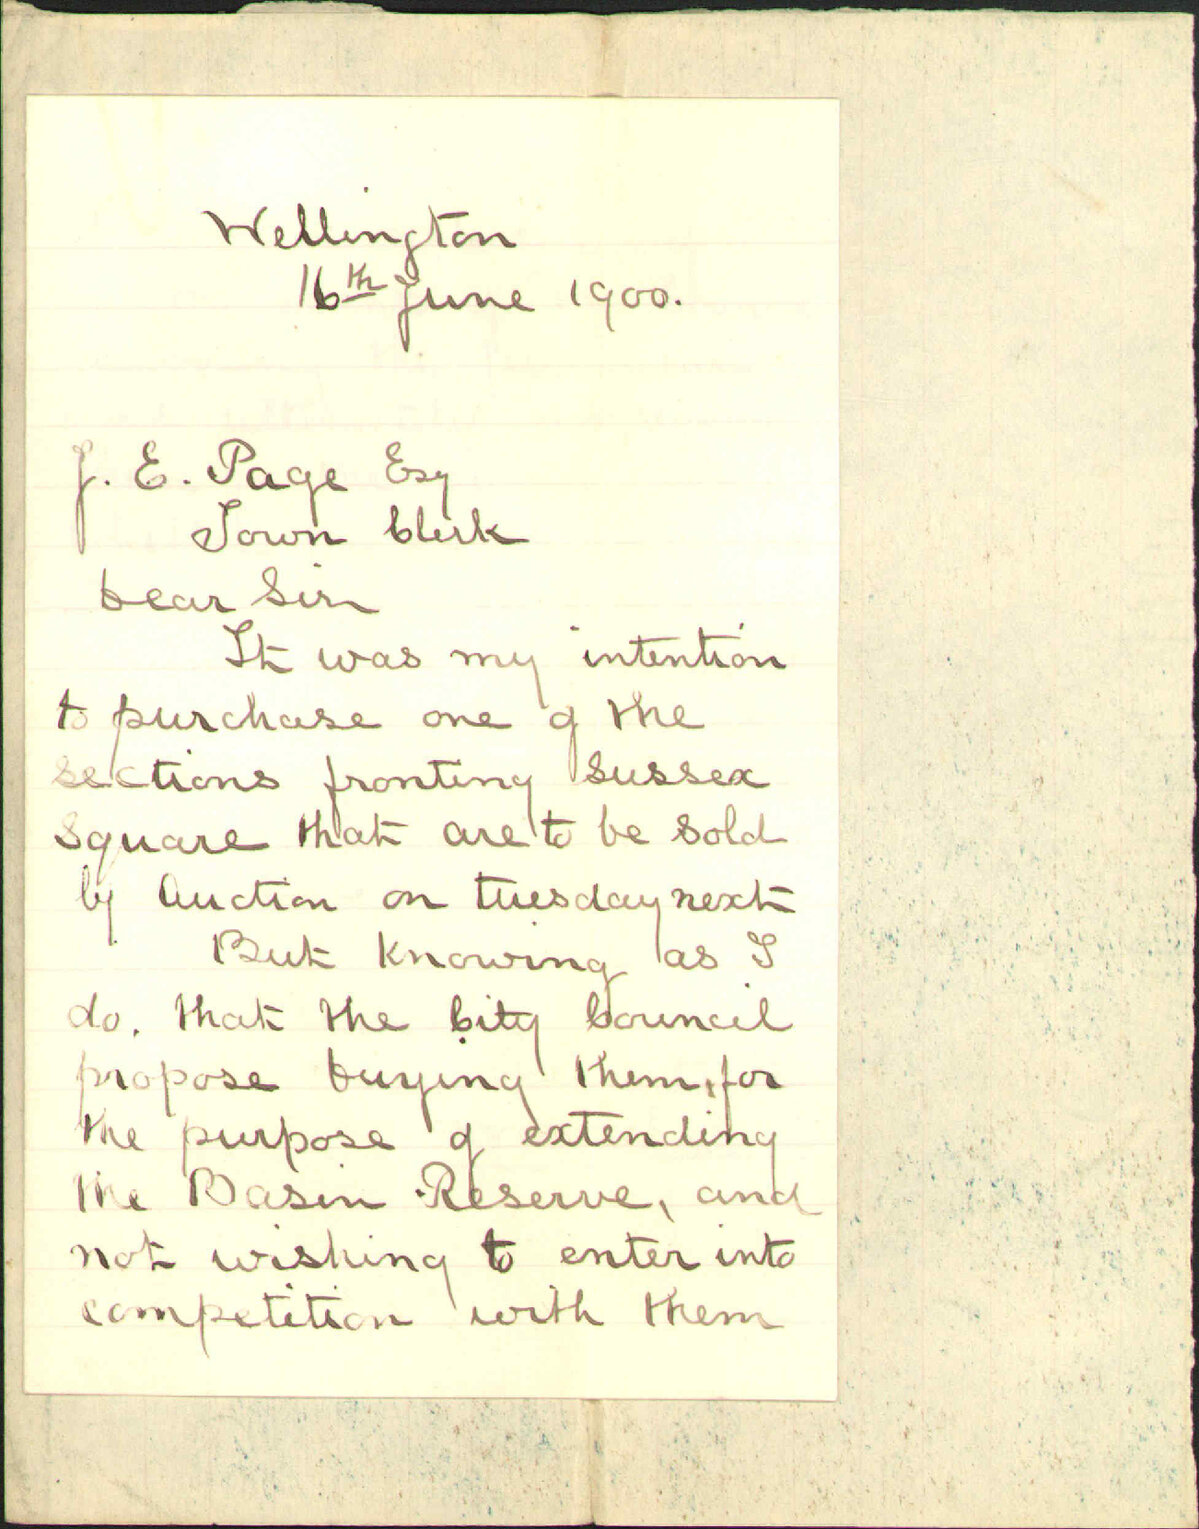 Wellington
16th June 1900.
J. E. Page Esq
Town Clerk
Dear Sir
It was my intention
to purchase one of the
sections fronting Sussex
Square that are to be sold
by Auction on tuesday next
But knowing as I
do, that the City Council
propose buying them, for
the purpose of extending
the Basin Reserve, and
not wishing to enter into
competition with them